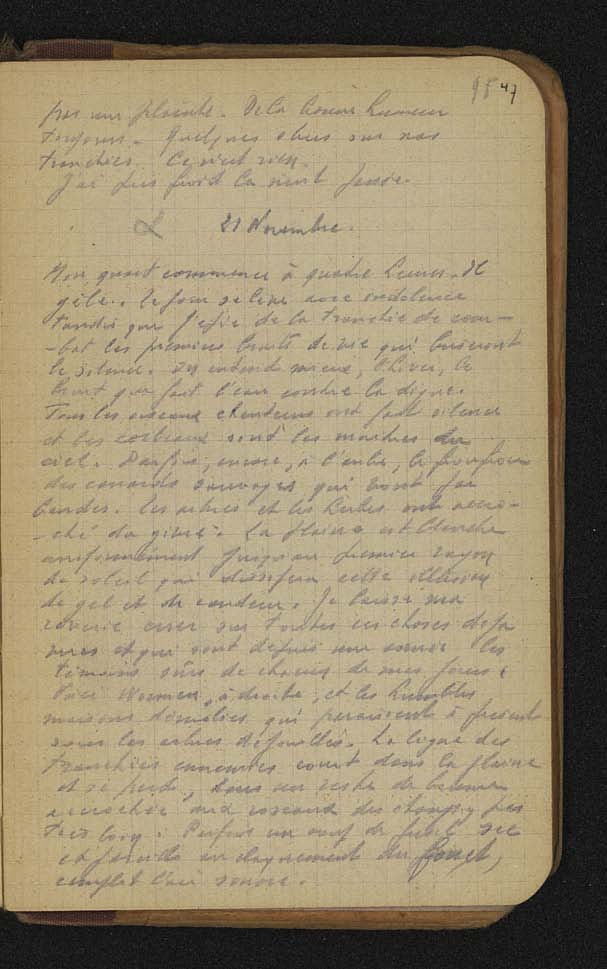 95 47
pas une plainte. De la bonne humeur
toujours. Quelques obus sur nos
tranchées. Ce n'est rien.
J'ai pris froid la nuit passée.
21 Novembre.
Mon quart commence à quatre heures. Il
gèle. Le jour se lève avec indolence
tandis que j'épie de la tranchée de com-
-bat les premiers bruits de vie qui briseront
le silence. On entend mieux, l'hiver, le
bruit que fait l'eau contre la digue.
Tous les oiseaux chanteurs ont fait silence
et les corbeaux sont les maîtres du
ciel. Parfois, encore, à l'aube, le froufrou
des canards sauvages qui vont par
bandes. Les arbres et les herbes ont accro-
-ché du givre. La plaine est blanche
uniformément jusqu'au premier rayon
de soleil qui dissipera cette illusion
de gel et de candeur. Je laisse ma
rêverie errer sur toutes ces choses déjà
vues et qui sont depuis une année les
témoins sûrs de chacun de mes jours :
Voici Woumen, à droite, et les humbles
maisons démolies qui paraissent à présent
sous les arbres défeuillés. La ligne des
tranchées ennemies court dans la plaine
et se perd, dans un reste de brume
accrochée aux roseaux des étangs pas
très loin. Parfois un coup de fusil sec
et pareil à un claquement de fouet,
emplit l'air sonore.